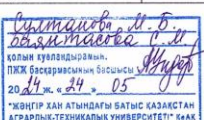 Султанова М. Б.
Баянтасова С. М.
қолын куәландырамын.
ПЖЖ басқармасының басшысы
2024 ж. «24» 05
"ЖӘҢГІР ХАН АТЫНДАҒЫ БАТЫС ҚАЗАҚСТАН
АГРАРЛЫҚ-ТЕХНИКАЛЫҚ УНИВЕРСИТЕТІ" КеАҚ